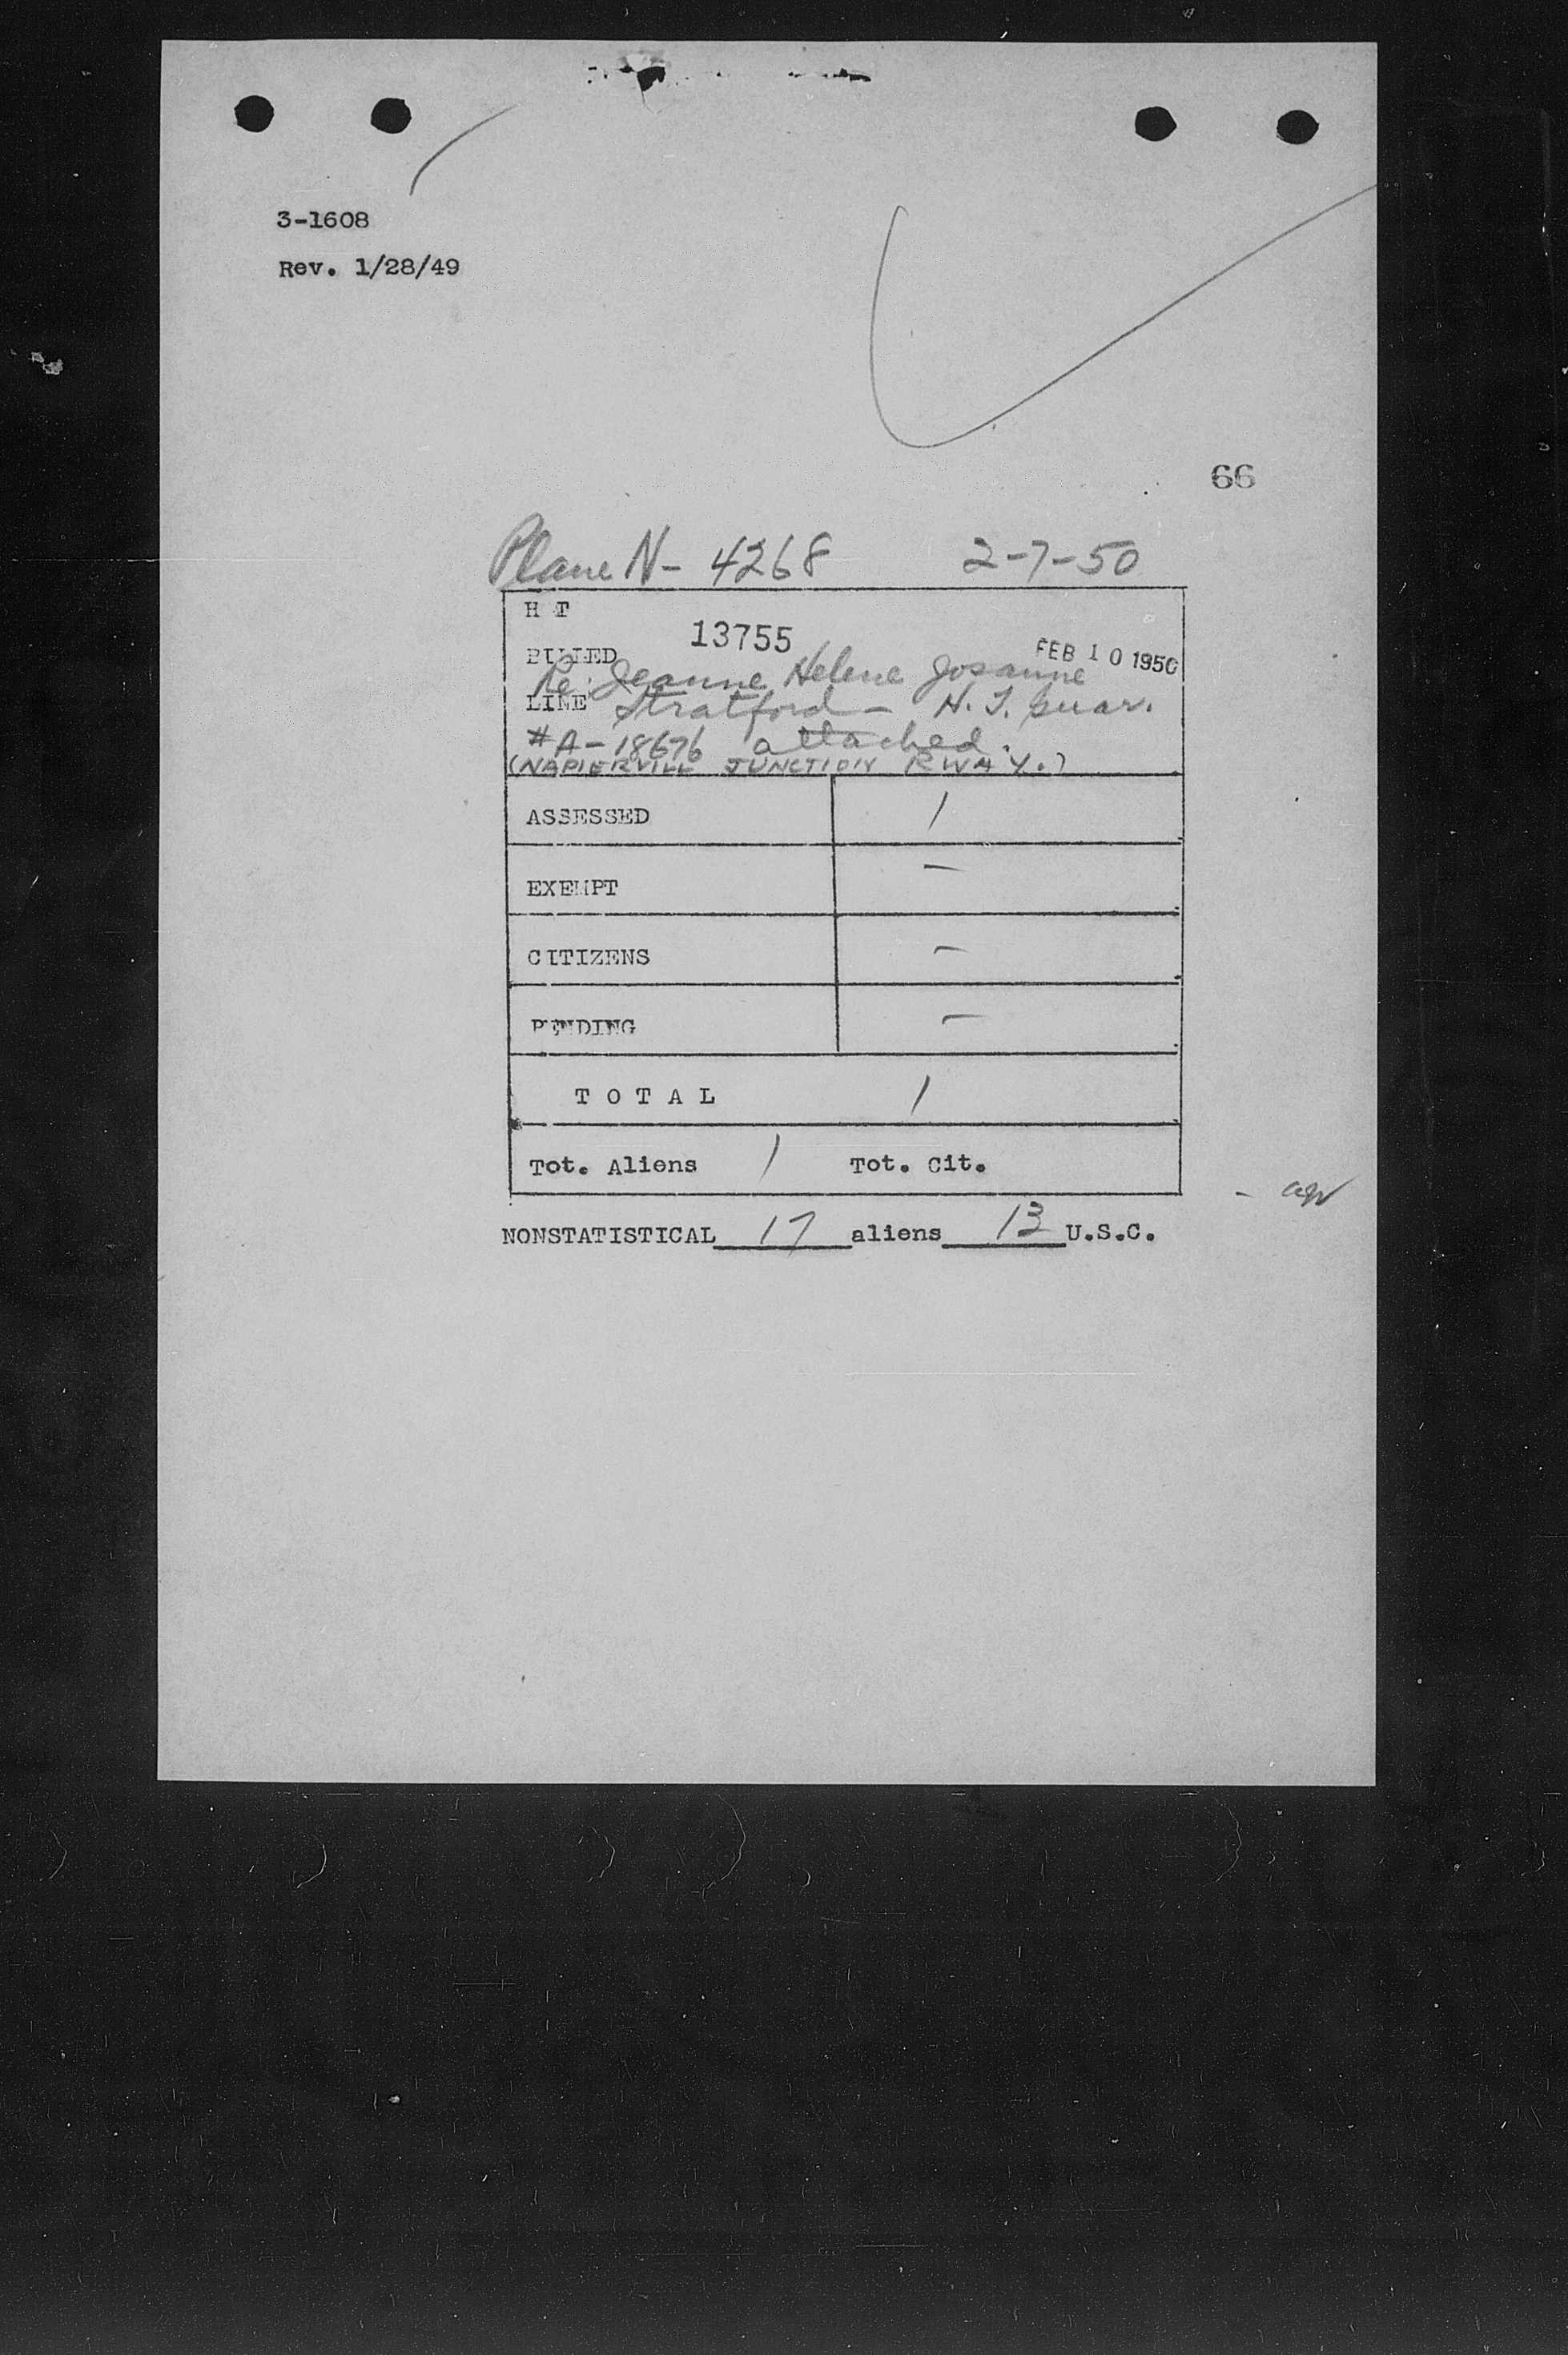 3-1608
Rev. 1/28/49
66
Plane N- 4268 2-7-50
H T
13755
BILLED FEB 10 1950
Re: Jeanne Helene Josanne
LINE Stratford - H. T. guar.
#A-18676 attached.
(NAPIERVILL JUNCTION RWAY.)
ASSESSED 1
EXEMPT -
CITIZENS -
PENDING -
T O T A L 1
Tot. Aliens 1 Tot. Cit.
NONSTATISTICAL 17 aliens 13 U.S.C.